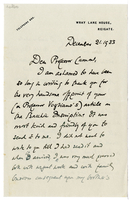 WRAY LANE HOUSE,
REIGATE.
December 21. 1933
Dear Professor Cumont,
I am ashamed to have been
so long in writing to thank you for
the very handsome offprint of your
(& Professor Vogliano's) article on
the Bacchic Inscription. It was
most kind and friendly of you to
send it to me. I did not want to
write to you till I had read it and
when it arrived I was very much pressed
with work and with family